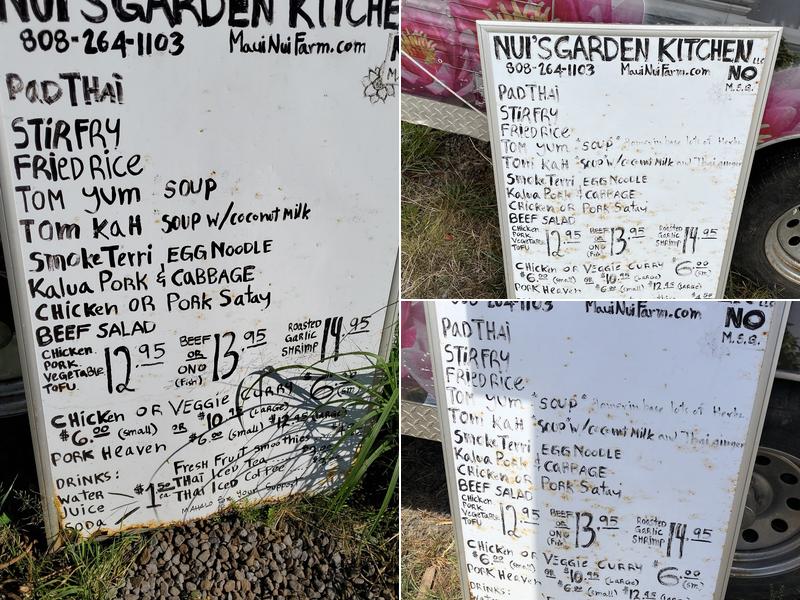 NUI'S GARDEN KITCHE
808-264-1103 MauiNuiFarm.com
PAD THAi
STiRFRY
FRiED RiCE
TOM YUM SOUP
TOM KAH SOUP W/coconut Milk
SmokeTerri EGG NOODLE
Kalua PORK & CABBAGE
CHicken OR PORK Satay
BEEF SALAD
CHICKEN PORK VEGETABLE TOFU 12.95 BEEF OR ONO (Fish) 13.95 ROASTED GARLIC SHRIMP 14.95
CHICKEN OR VEGGIE CURRY 6.00
$6.00 (small) OR $10.95 (LARGE)
PORK HEAVEN $6.00 (small) $12.95 (LARGE)
DRINKS: Fresh Fruit smoothies
WATER $1.50 ea THAI ICED Tea
JUICE THAI ICED COFFEE
SODA MAHALO For Your Support
NUI'S GARDEN KITCHEN LLC
808-264-1103 MauiNuiFarm.com NO
M.S.G.
PAD THAi
STIRFRY
FRIED RICE
TOM YUM "SOUP"
TOM KAH SOUP W/coconut Milk and Thai ginger
SmokeTerri EGG NOODLE
Kalua PORK & CABBAGE
CHICKEN OR PORK Satay
BEEF SALAD
CHICKEN PORK VEGETABLE TOFU 12.95 BEEF OR ONO (Fish) 13.95 ROASTED GARLIC SHRIMP 14.95
CHICKEN OR VEGGIE CURRY 6.00 (sm)
$6.00 (small) OR $10.95 (LARGE)
PORK HEAVEN $6.00 (small) $12.95 (LARGE)
808-264-1103 MauiNuiFarm.com NO
M.S.G.
PAD THAi
STIRFRY
FRIED RICE
TOM YUM "SOUP" lots of Herbs
TOM KAH SOUP W/coconut Milk and Thai ginger
SmokeTerri EGG NOODLE
Kalua PORK & CABBAGE
CHICKEN OR PORK Satay
BEEF SALAD
CHICKEN PORK VEGETABLE TOFU 12.95 BEEF OR ONO (Fish) 13.95 ROASTED GARLIC SHRIMP 14.95
CHICKEN OR VEGGIE CURRY 6.00 (sm)
$6.00 (small) OR $10.95 (LARGE)
PORK HEAVEN $6.00 (small) $12.95 (LARGE)
DRINKS: